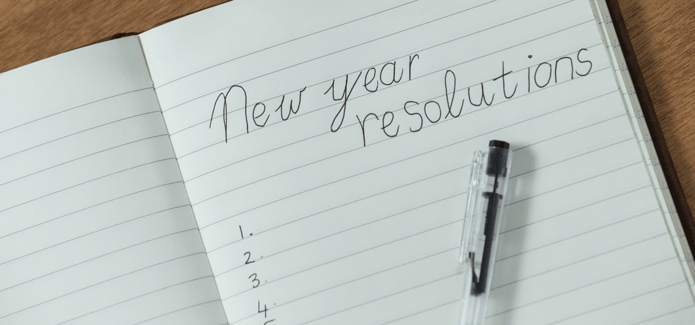 New year
resolutions
1.
2.
3.
4.